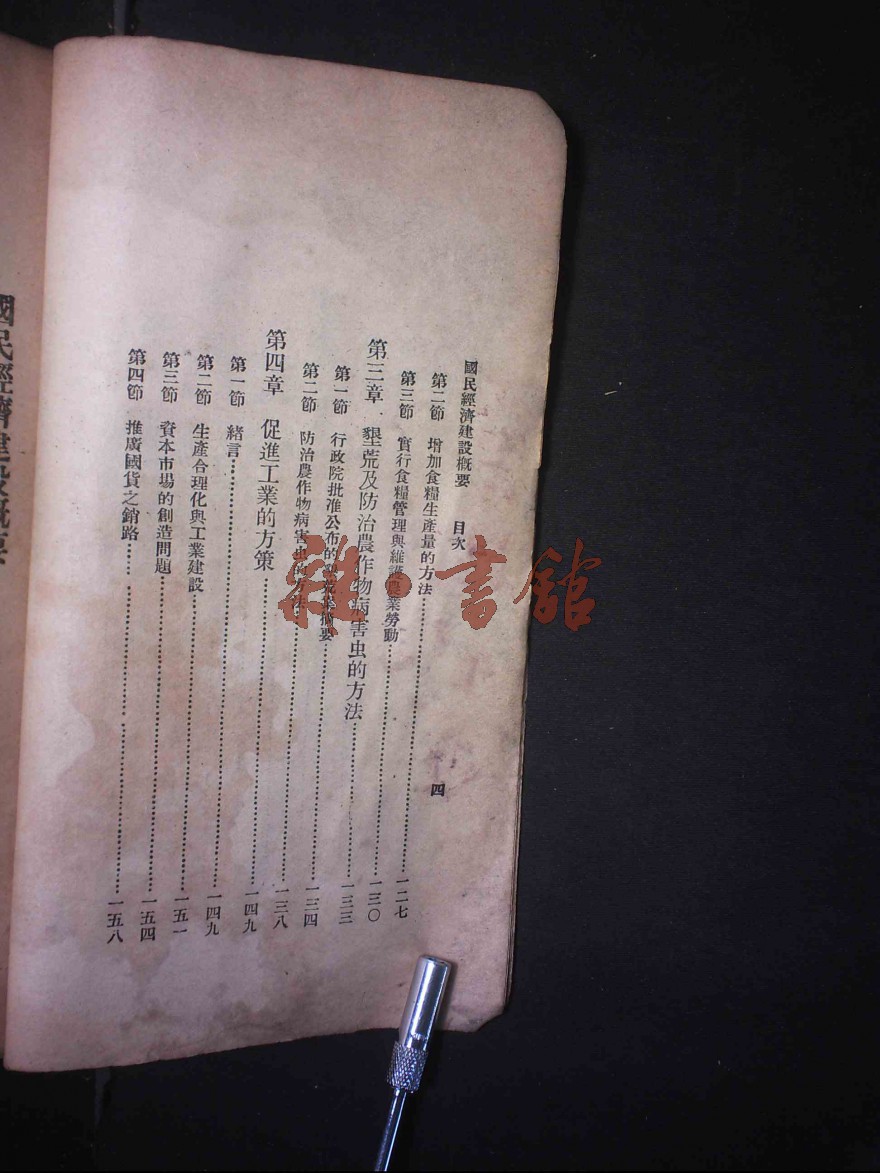 國民經濟建設概要 目次 四
第二節 增加食糧生產量的方法……一二七
第三節 實行食糧管理與維護農業勞動……一三〇
第三章 墾荒及防治農作物病害虫的方法……一三三
第一節 行政院批准公布的 摘要……一三四
第二節 防治農作物病害虫的方法……一三八
第四章 促進工業的方策……一四九
第一節 緒言……一四九
第二節 生產合理化與工業建設……一五一
第三節 資本市場的創造問題……一五四
第四節 推廣國貨之銷路……一五八
國民經濟建設概要
雜·書館